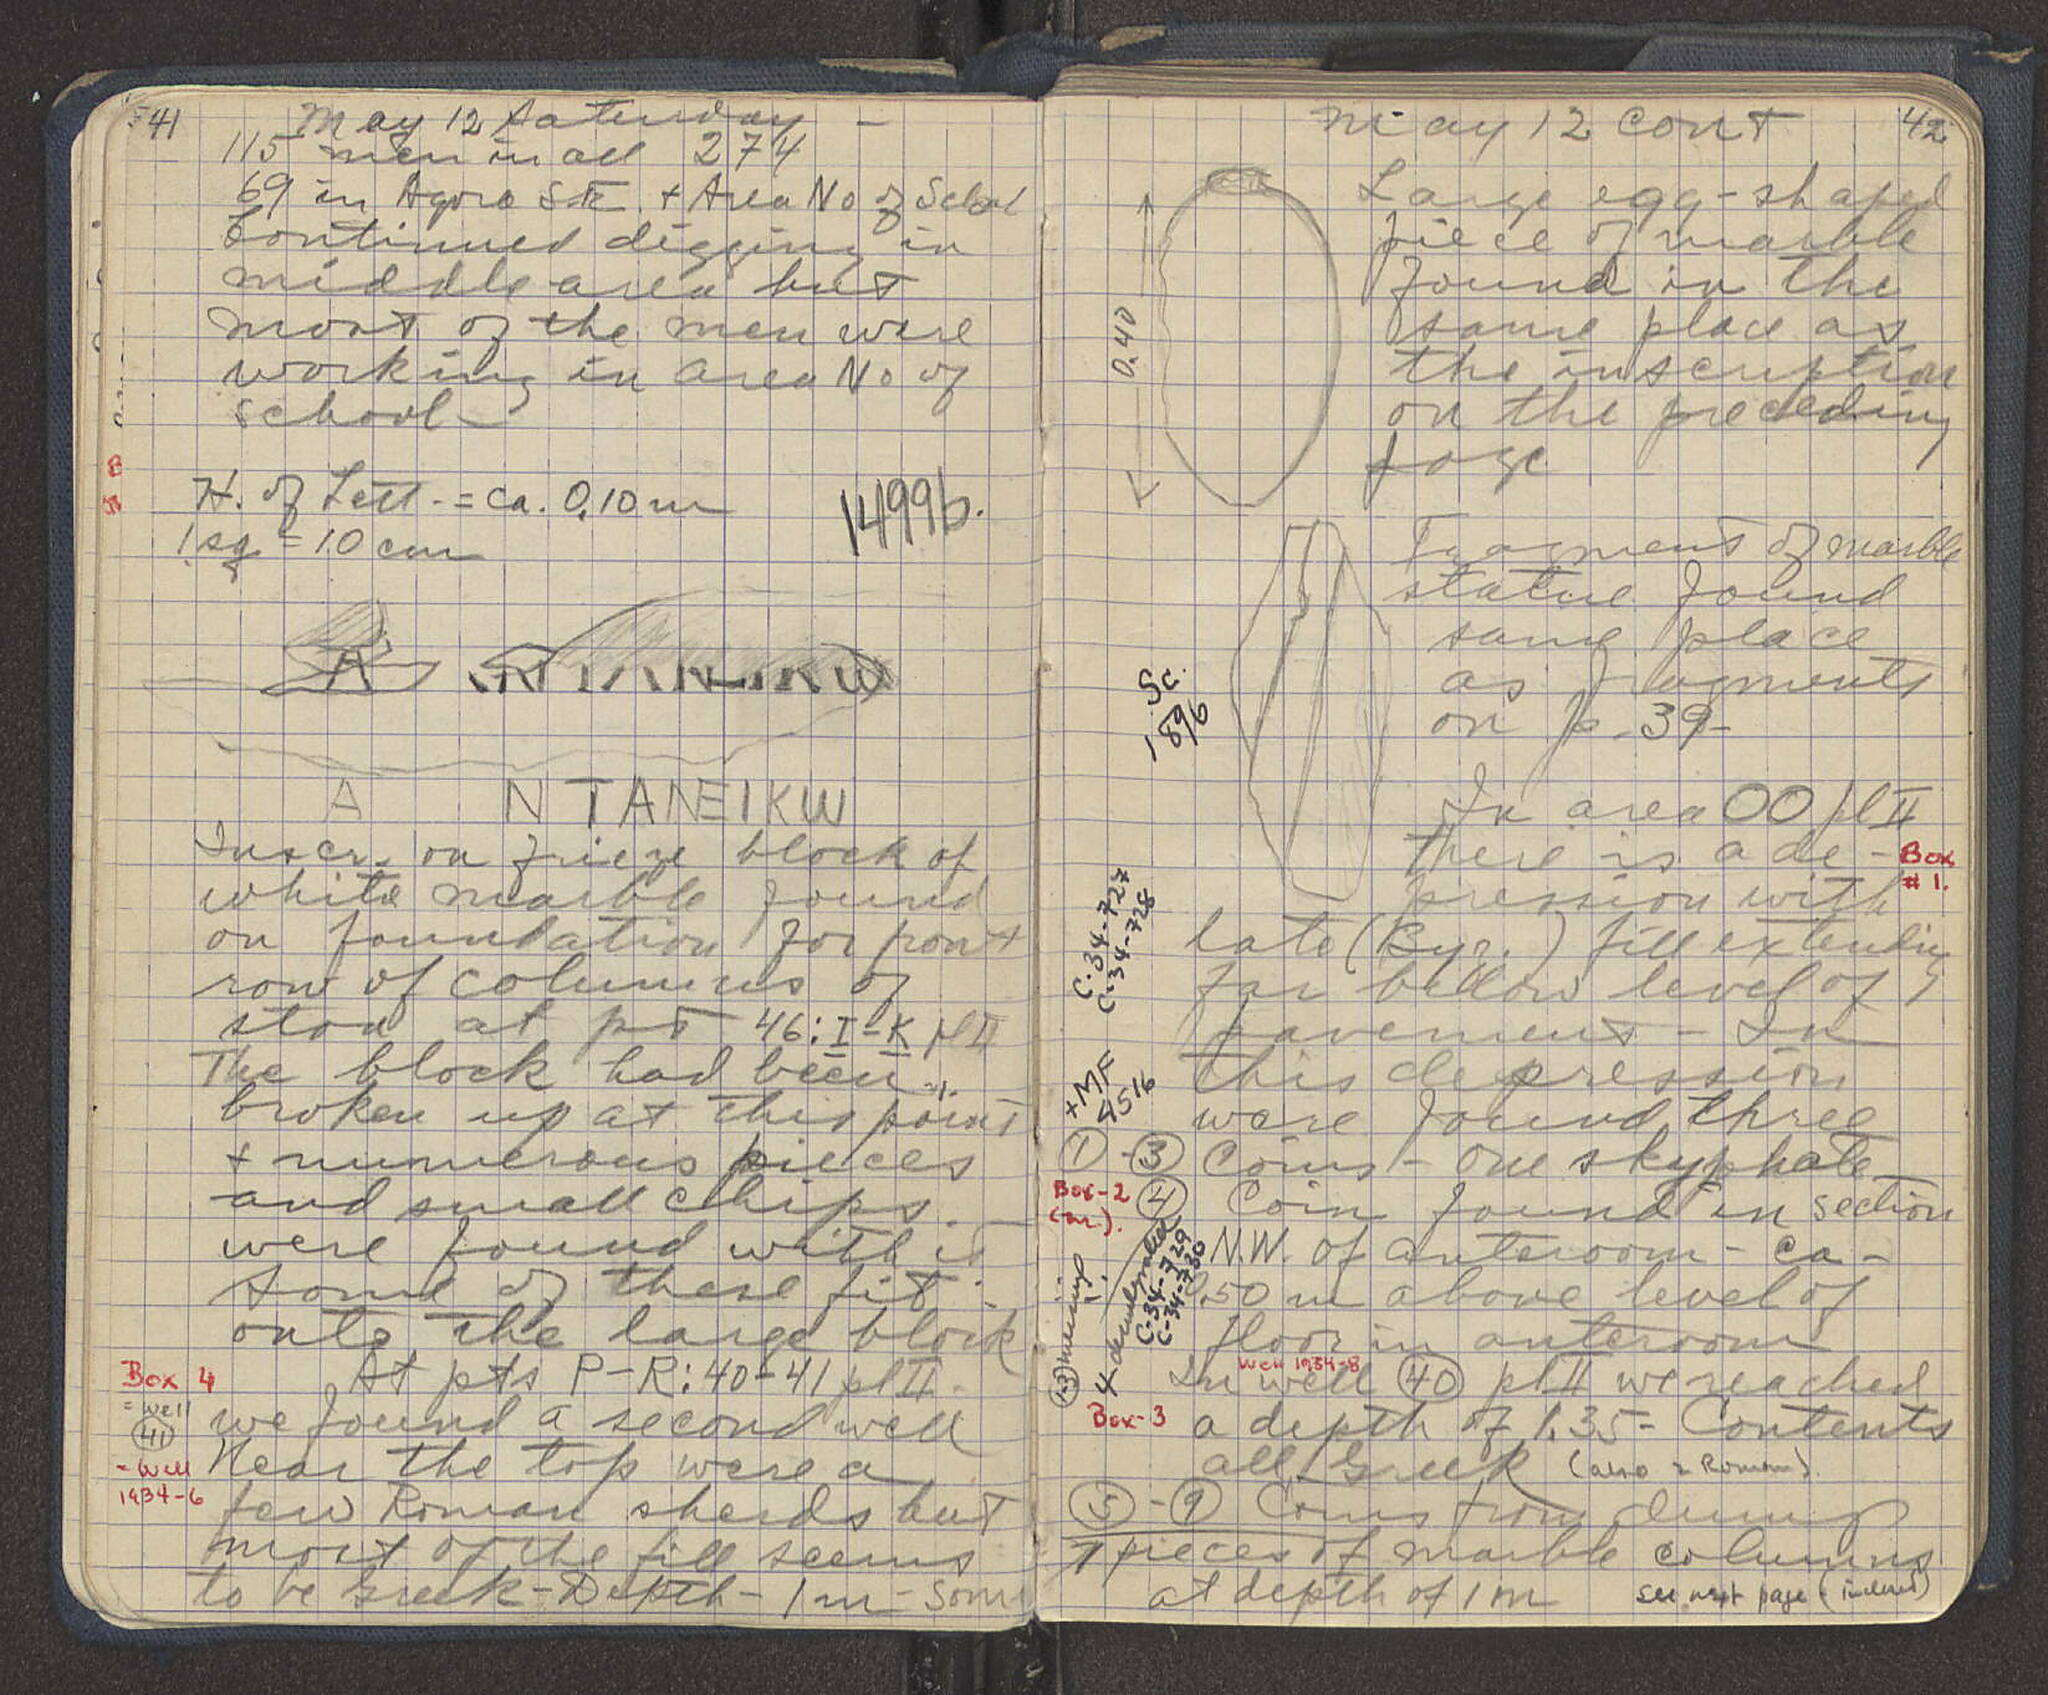 41
May 12 Saturday -
115 men in all 274
69 in Agora S.E. + Area No of School
Continued digging in
middle area but
most of the men were
working in area No of
School
H. of Lett. = ca. 0,10 m
1499b.
1 sq = 10 cm
A NTANEIKW
A NTANEIKW
Inscr. on frieze block of
white marble found
on foundation for front
row of columns of
stoa at pt 46:I-K pl II
The block had been
broken up at this point
+ numerous pieces
and small chips
were found with it
Some of these fit
onto the large block
Box 4
= well
41
= Well
1934-6
At pts P-R:40-41 pl II
we found a second well
Near the top were a
few Roman sherds but
most of the fill seems
to be Greek - Depth - 1 m - Some
May 12 cont
42
0.40
Large egg-shaped
piece of marble
found in the
same place as
the inscription
on the preceding
page
Sc.
1896
Fragment of marble
statue found
same place
as fragments
on p. 39-
In area OO pl II
there is a de-
pression with
Box
# 1.
late (Byz.) fill extending
far bellow level of
pavement - In
this depression
were found three
C-34-727
C-34-728
+ MF
4516
1 - 3 Coins - one skyphate
Box-2
4 Coin found in section
N.W. of anteroom - ca -
0,50 m above level of
floor in anteroom
1-3 missing
4 disintegrated
C-34-729
C-34-730
Well 1934-8
In well 40 pl II we reached
Box-3
a depth of 1.35 - Contents
all Greek (also 2 Roman).
5 - 9 Coins from dump
7 pieces of marble columns
at depth of 1 m see next page (indeed)